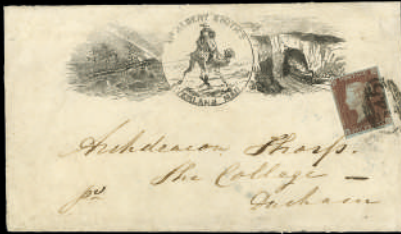 ALBERT SMITH'S
OVERLAND MAIL
Archdeacon Thorp.
The College —
Durham